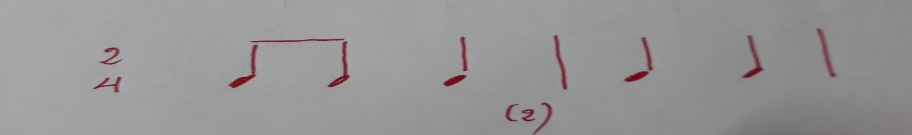 2
4
(2)